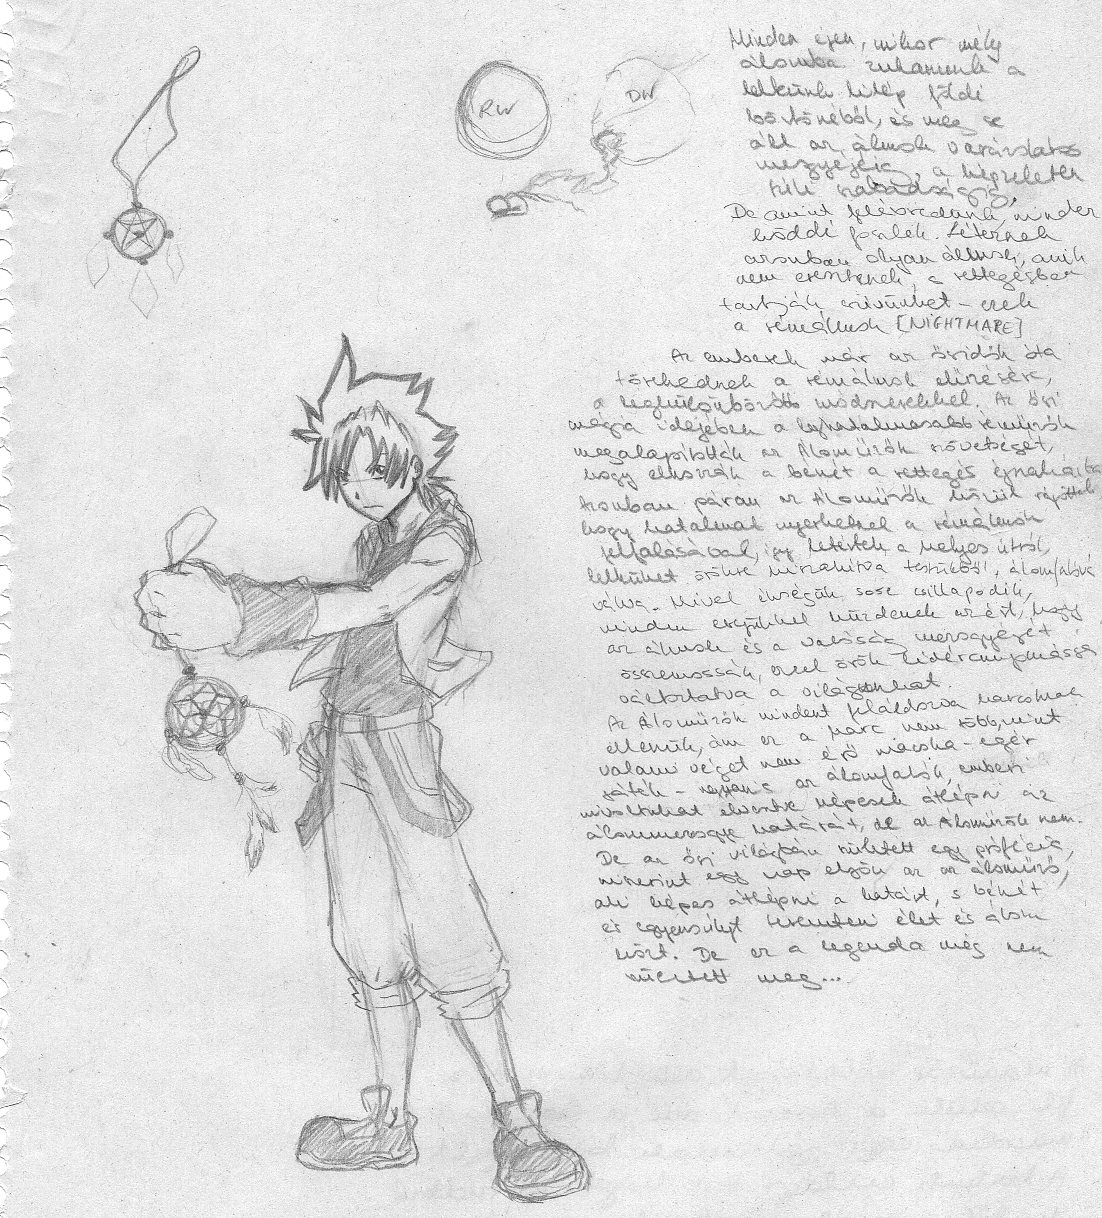 RW
DW
Minden éjen, mikor mély
álomba zuhanunk a
lelkünk kilép földi
börtönéből, és meg se
áll az álmok varázslatos
mezsgyéjéig, a képzeleten
túli szabadságig.
De amint felébredünk, minden
köddé foszlik. Léteznek
azonban olyan álmok, amik
nem eresztenek, a rettegésben
tartják szívünket - ezek
a rémálmok [NIGHTMARE]
Az emberek már az ősidők óta
törekednek a rémálmok elűzésére,
a legkülönbözőbb módszerekkel. Az ősi
mágia idejében a leghatalmasabb
megalapították az Áloműzők szövetségét,
hogy elhozzák a békét a rettegés éjszakáiba
Azonban páran az Áloműzők közül rájöttek,
hogy hatalmat nyerhetnek a rémálmok
felfalásával, így letértek a helyes útról,
lelküket örökre kiszakítva testükből, álomfalóvá
válva. Mivel éhségük sose csillapodik,
minden erejükkel küzdenek azért, hogy
az álmok és a valóság mezsgyéjét
összemossák, ezzel örök lidércnyomássá
változtatva a világunkat.
Az Áloműzők mindent feláldozva harcolnak
ellenük, ám ez a harc nem több, mint
valami véget nem érő macska-egér
játék - ugyanis az álomfalók, emberi
mivoltukat elvesztve képesek átlépni az
álommezsgye határát, de az Áloműzők nem.
De az ősi világban született egy prófécia,
miszerint egy nap eljön az az áloműző,
aki képes átlépni a határt, s békét
és egyensúlyt teremteni élet és álom
közt. De ez a legenda még nem
született meg...